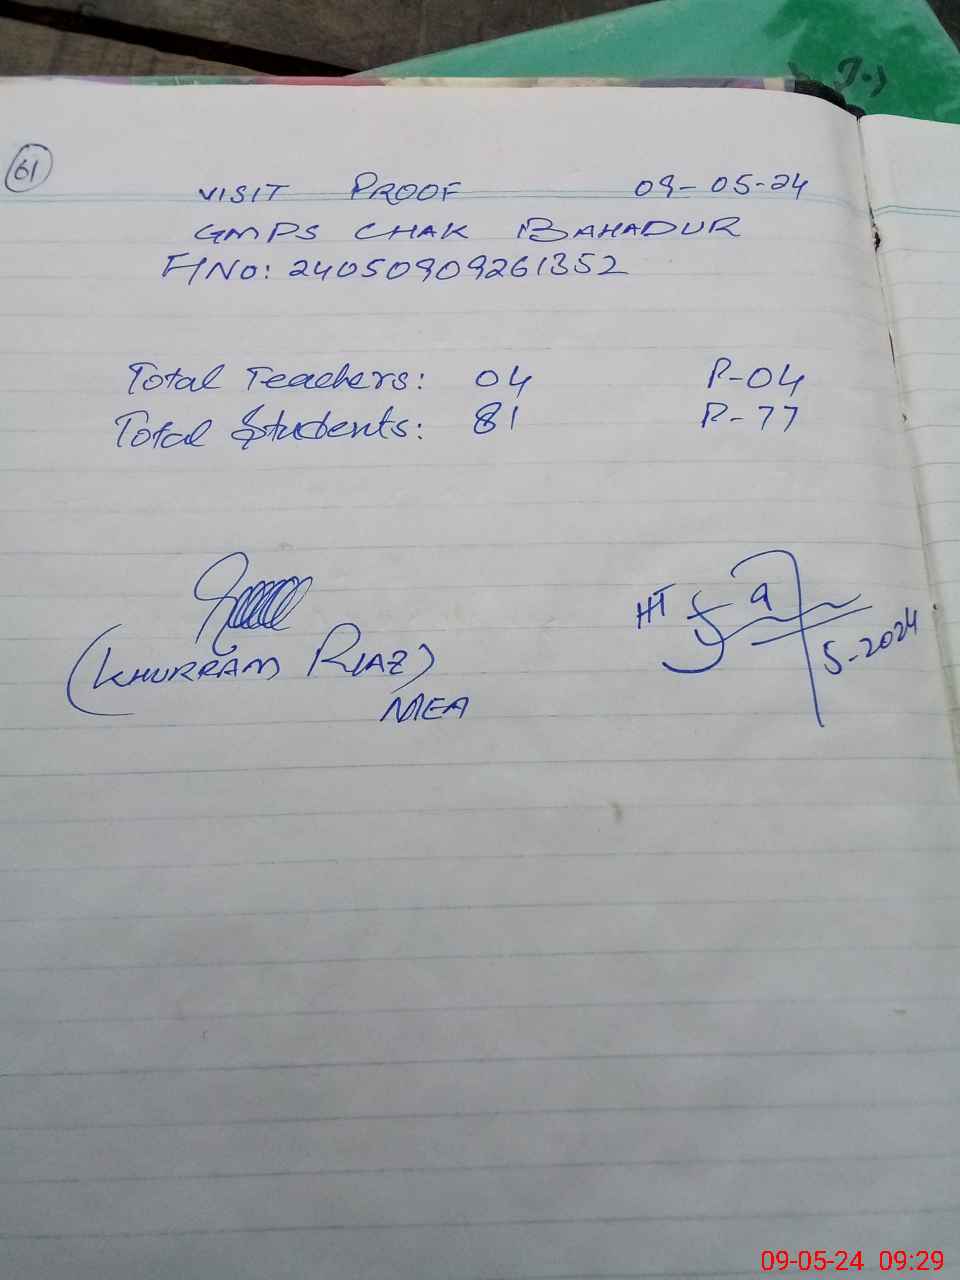 61
VISIT PROOF 09-05-24
GMPS CHAK BAHADUR
F/No: 24050909261352
Total Teachers: 04 P-04
Total Students: 81 P-77
(KHURRAM RIAZ)
MEA
HT
9
5-2024
09-05-24 09:29